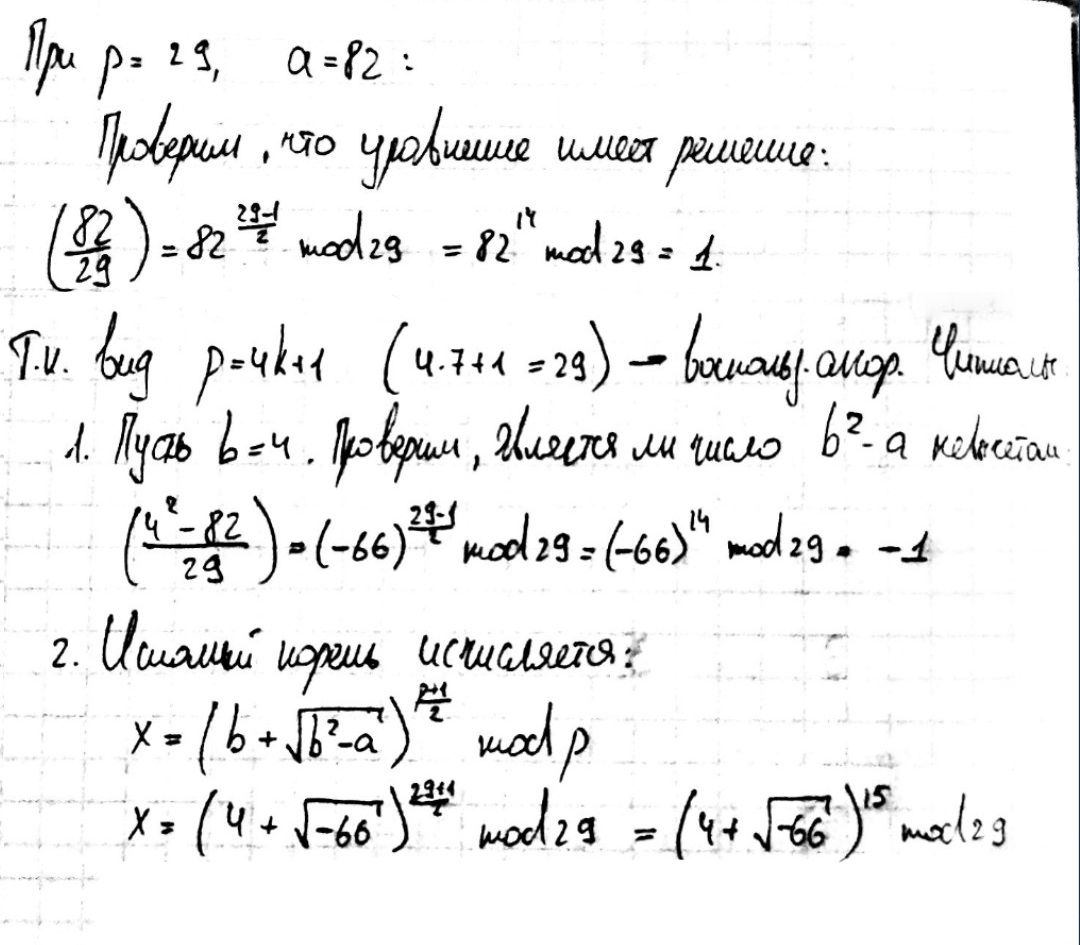 При p = 29, a = 82 :
Проверим, что уравнение имеет решение:
(82/29) = 82^((29-1)/2) mod 29 = 82^14 mod 29 = 1.
Т.к. вид p = 4k+1 (4·7+1 = 29) – воспольз. алгор. Чипполы
1. Пусть b = 4. Проверим, является ли число b² - a невычетом
((4² - 82)/29) = (-66)^((29-1)/2) mod 29 = (-66)^14 mod 29 = -1
2. Искомый корень исчисляется:
x = (b + √(b² - a))^((p+1)/2) mod p
x = (4 + √(-66))^((29+1)/2) mod 29 = (4 + √(-66))^15 mod 29